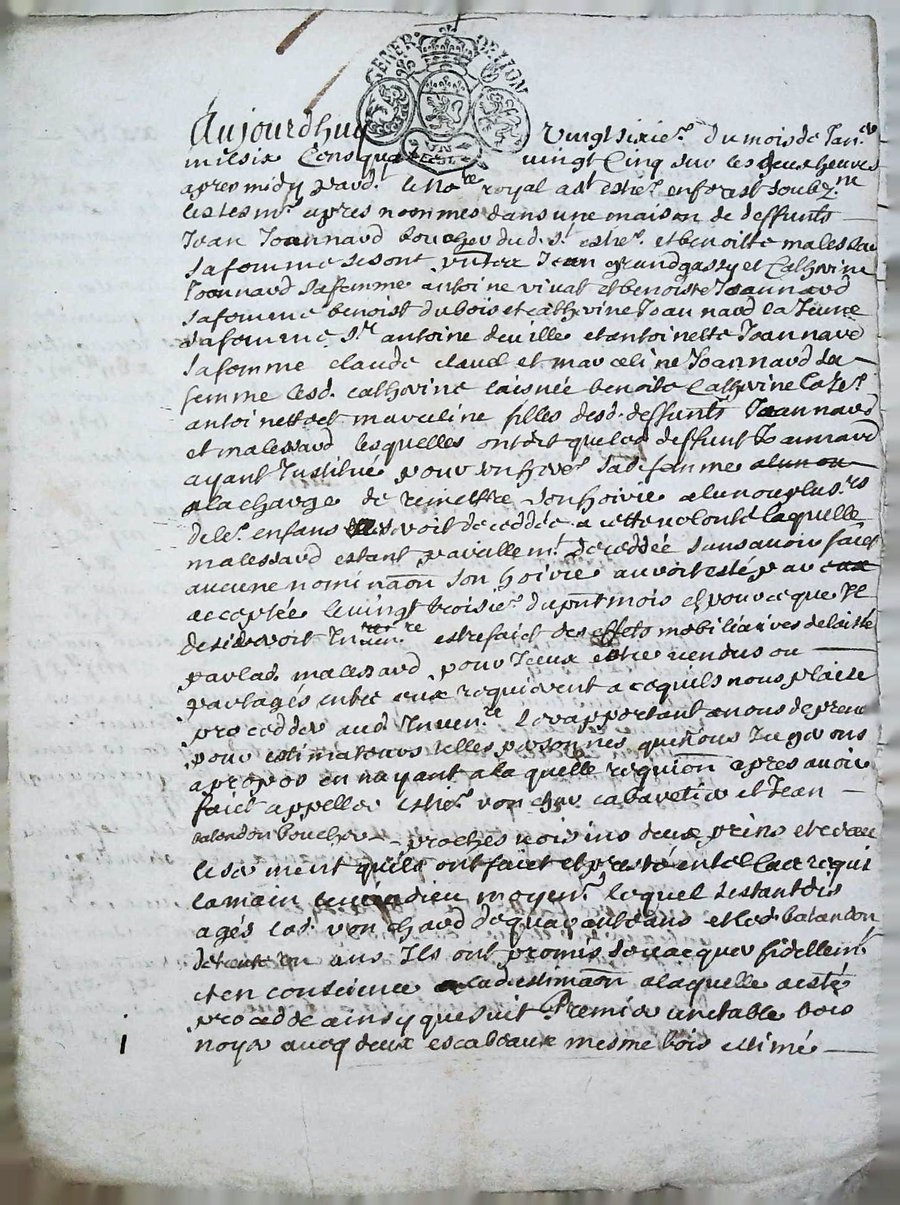 GENER DE LYON
UN SOL
Aujourdhuy vingtsixie.e du mois de Jan.er
mil six Cens qua vingt Cinq sur les deux heures
apres midy pard.t le No.re royal a St estie.e en forest soubz.ne
les tesm.s apres nommes dans une maison de deffunts
Jean Joannard boucher dud. St estie.e et benoitte malessard
sa femme se sont Jean grandgassy et Catherine
Joannard sa femme antoine vivat et benoiste Joannard
sa femme benoist dubois et catherine Joannard la Jeune
sa femme S.r antoine deville et antoinette Joannard
sa femme claude claud et marceline Joannard sa
femme lesd. catherine laisnée benoite Catherine la Je.e
antoinette et marceline filles desd. deffunts Joannard
et malessard lesquelles ont dit que led deffunt Joannard
ayant Institué pour son he.re sad. femme a lun ou
a la charge de remettre son hoirie a lun ou plus.rs
de le.s enfans seroit decedée a cette volonté laquelle
malessard estant pareillem.t decedée sans avoir faict
aucune nomination son hoirie auroit esté par eux
acceptée le vingt troisie.e du pnt mois et pour ce que Il
desireroit Inven.re estre faict des effets mobiliaires delaissé
par lad. malessard pour Iceux estre vendus ou
partagés entre eux requierent a ce quils nous plaise
procedder aud. Inven.re se rapportant a nous de prendre
pour estimateurs telles personnes que nous Jugerons
a propos en ayant a la quelle requion apres avoir
faict appeller estie.e cabaretier et Jean
balandon boucher proches voisins deux prins et receu
le serment quils ont faict et presté
la main levée a dieu moyen.t lequel sestant dis
agés led. de quarante ans et led. balandon
de ans Ils ont promis de vacquer fidellem.t
et en conscience a lad estimaon a laquelle a esté
procedde ainsy que suit Premier une table bois
noyer avecq deux escabeaux mesme bois estimé